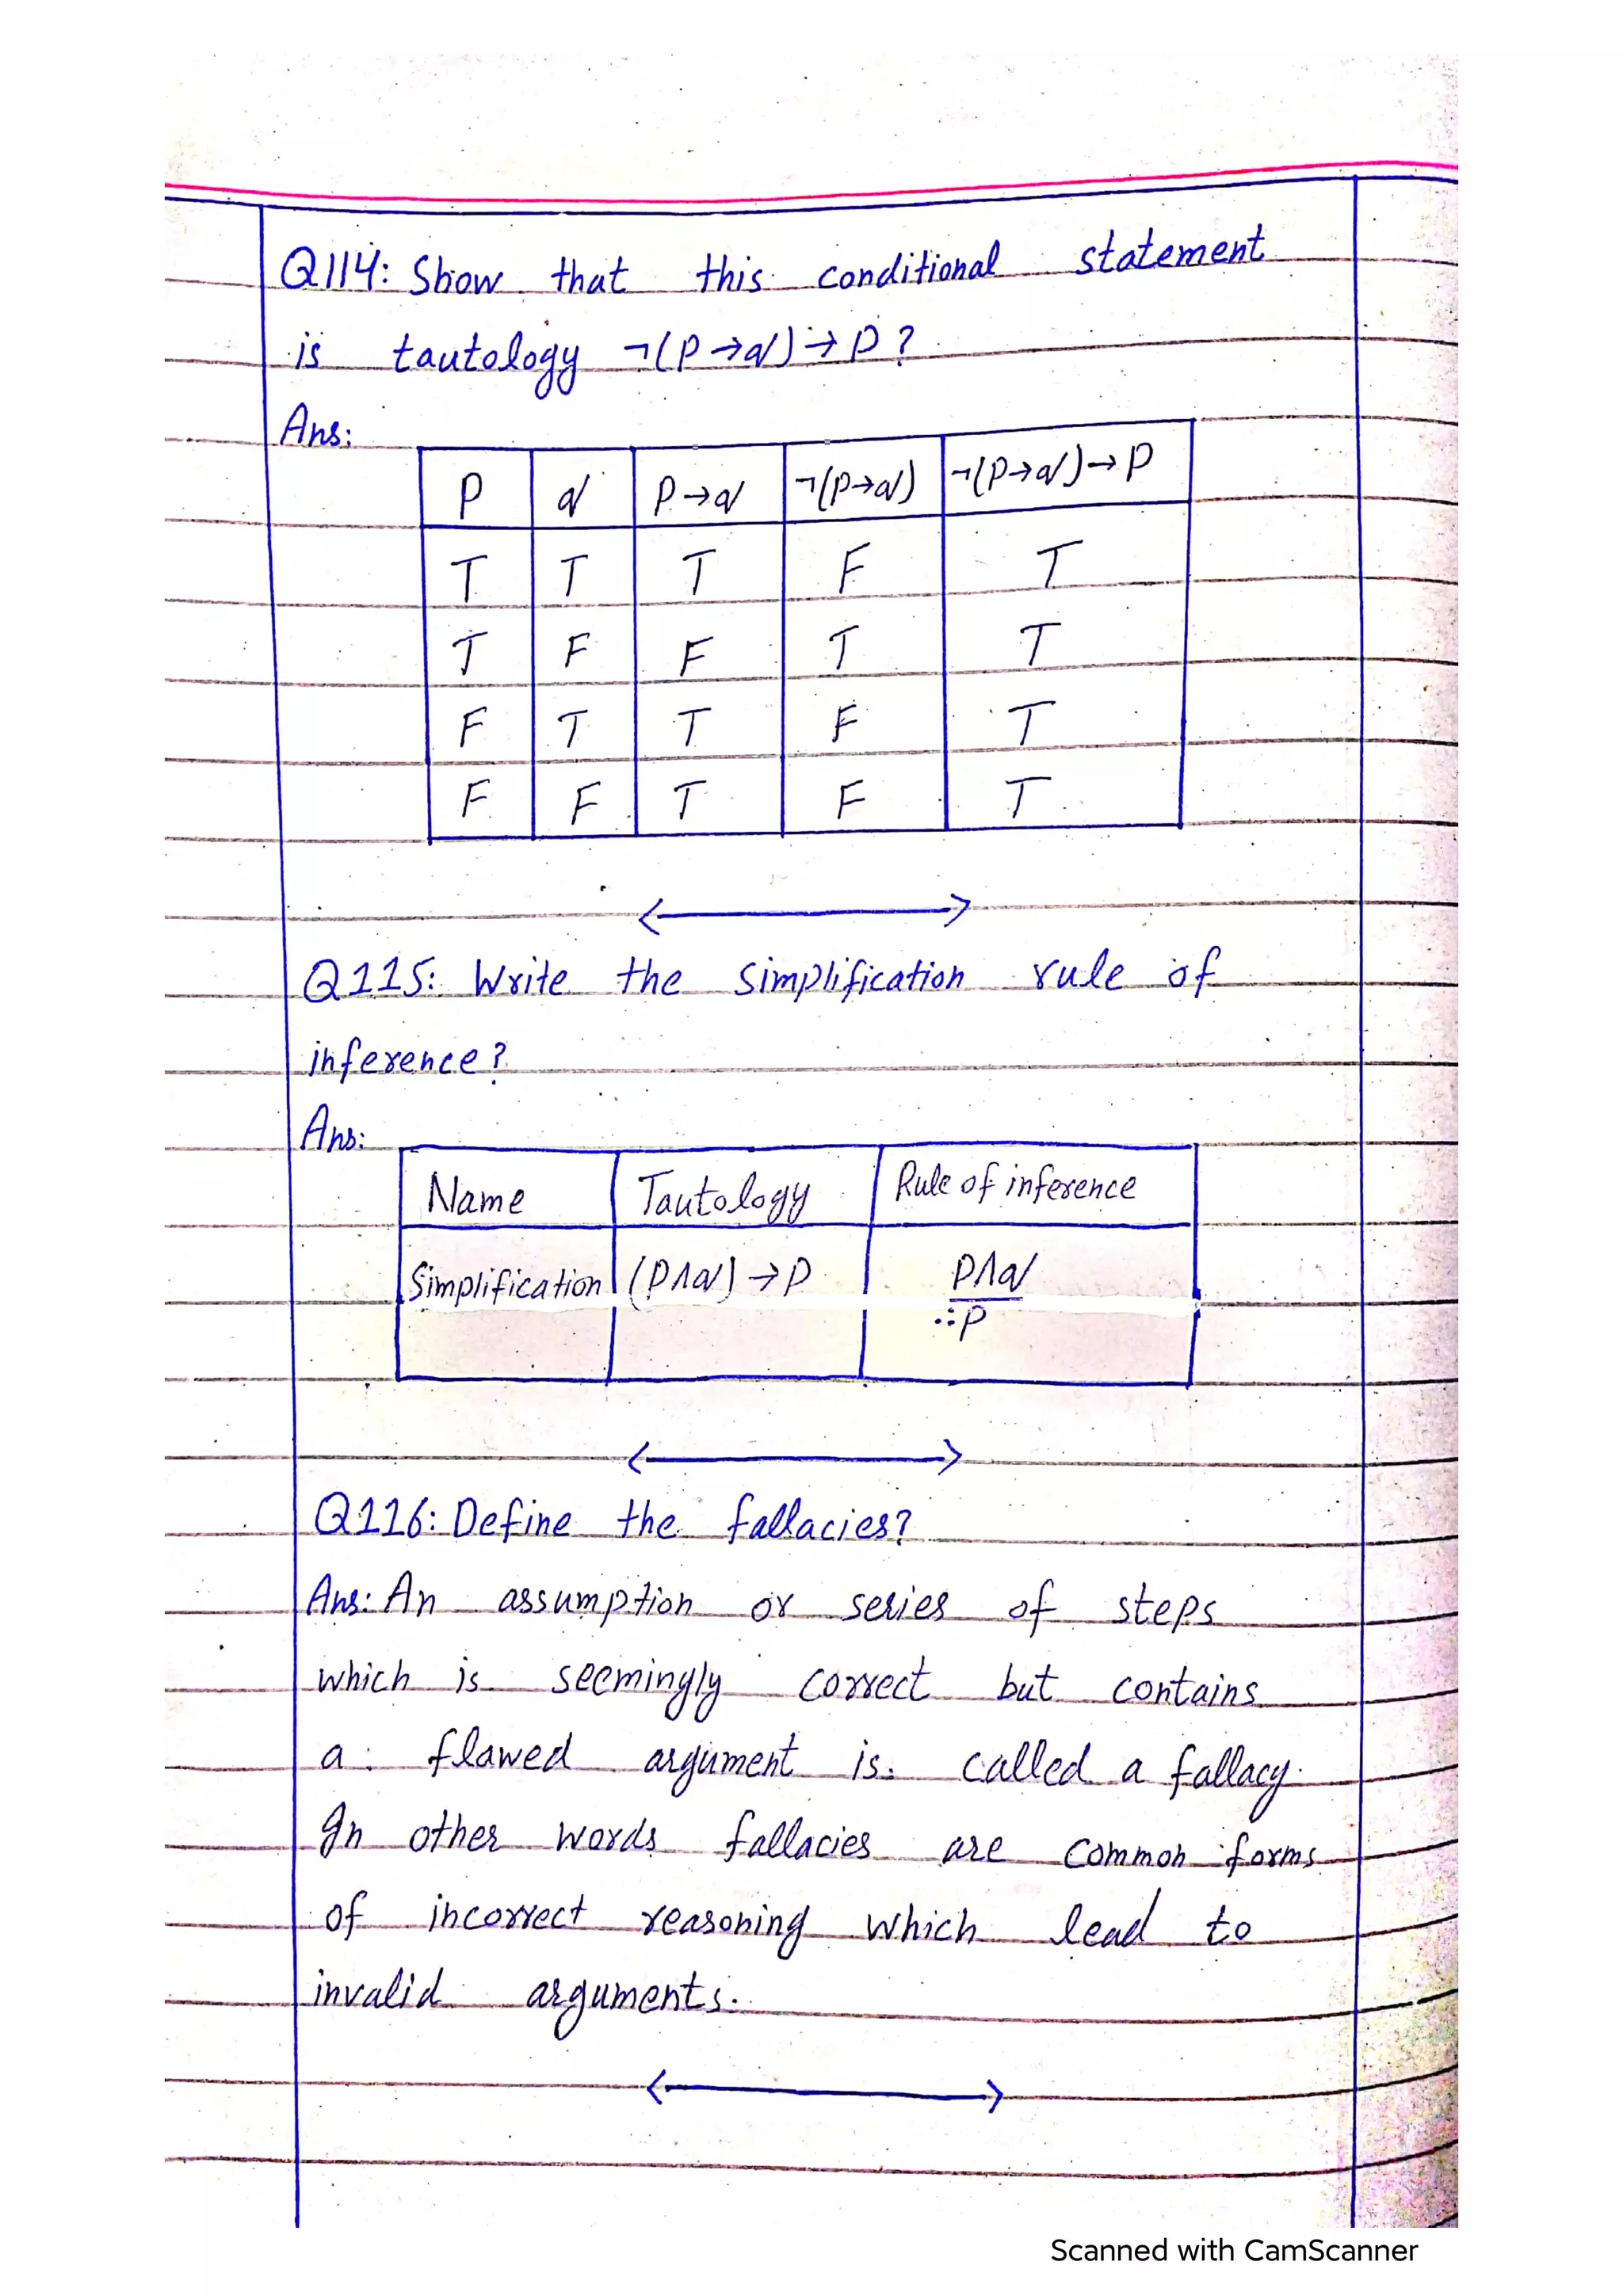 Q114: Show that this conditional statement
is tautology ¬(P→q)→P?
Ans:
P q P→q ¬(P→q) ¬(P→q)→P
T T T F T
T F F T T
F T T F T
F F T F T
Q115: Write the simplification rule of
inference?
Ans:
Name Tautology Rule of inference
Simplification (P∧q)→P P∧q
∴P
Q116: Define the fallacies?
Ans: An assumption or series of steps
which is seemingly correct but contains
a flawed argument is called a fallacy.
In other words fallacies are common forms
of incorrect reasoning which lead to
invalid arguments.
Scanned with CamScanner